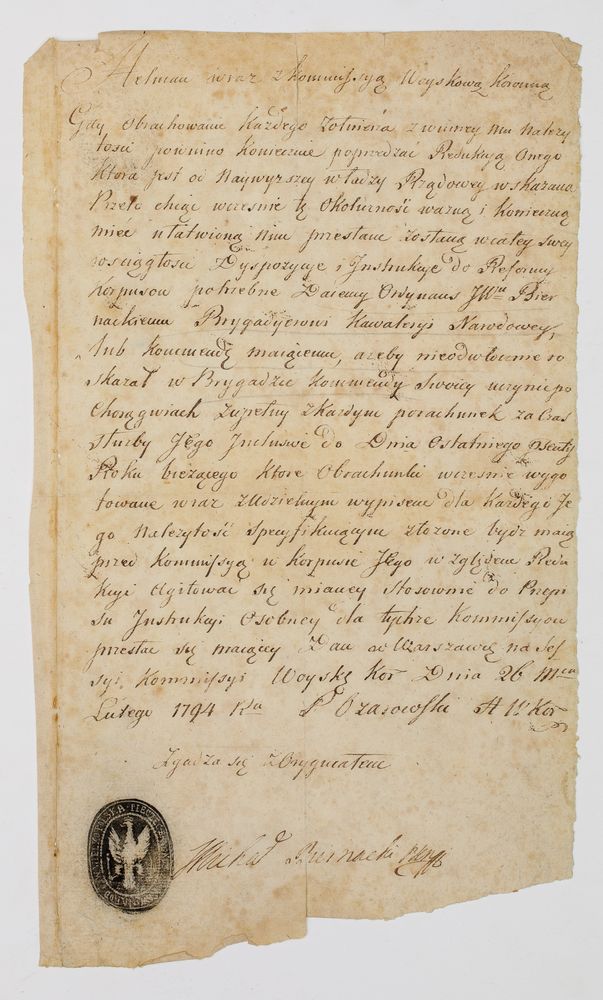 Hetman wraz z Kommissyą Woyskową Koronną
Gdy obrachowanie Każdego Żołnierza z winney mu należy
tości powinno koniecznie poprzedzać Redukcyą onego
Ktora jest od Naywyższey władzy Rządowey wskazana
Przeto chcąc wcześnie tę okoliczność ważną i konieczną
mieć ułatwioną nim przesłane zostaną w całey swey
rosciągłości Dyspozycye i Instrukcye do Reformy
Korpusow potrzebne Daiemy Ordynans JWmu Bier
nackiemu Brygadyerowi Kawaleryi Narodowey,
lub Kommendę maiącemu, ażeby nieodwłocznie ro
skazał w Brygadzie kommendy Swoiey uczynić po
Chorągwiach zupełny z Każdym porachunek za Czas
służby Jego Inclusive do Dnia Ostatniego
Roku bieżącego Ktore Obrachunki wcześnie wygo
towane wraz z Udzielnym wypisem dla Każdego Je
go Należytość specyfikuiącym złożone bydź maią
przed Kommissyą w Korpusie Jego względem Redu
kcyi agitować się maiącey stosownie do Przepi
su Instrukcyi Osobney dla tychże Kommissyow
przesłać się maiącey Dan w Warszawie na Ses
syi Kommissyi Woysk: Kor Dnia 26 Mca
Lutego 1794 Ru P Ożarowski H W Kor
Zgadza się z Oryginałem
Michał Biernacki